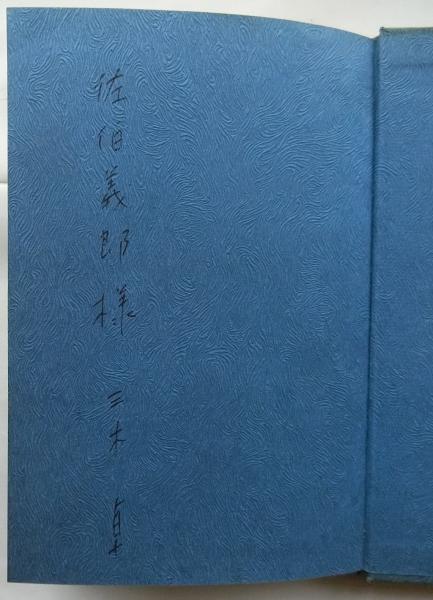 佐伯義郎様 三木 卓